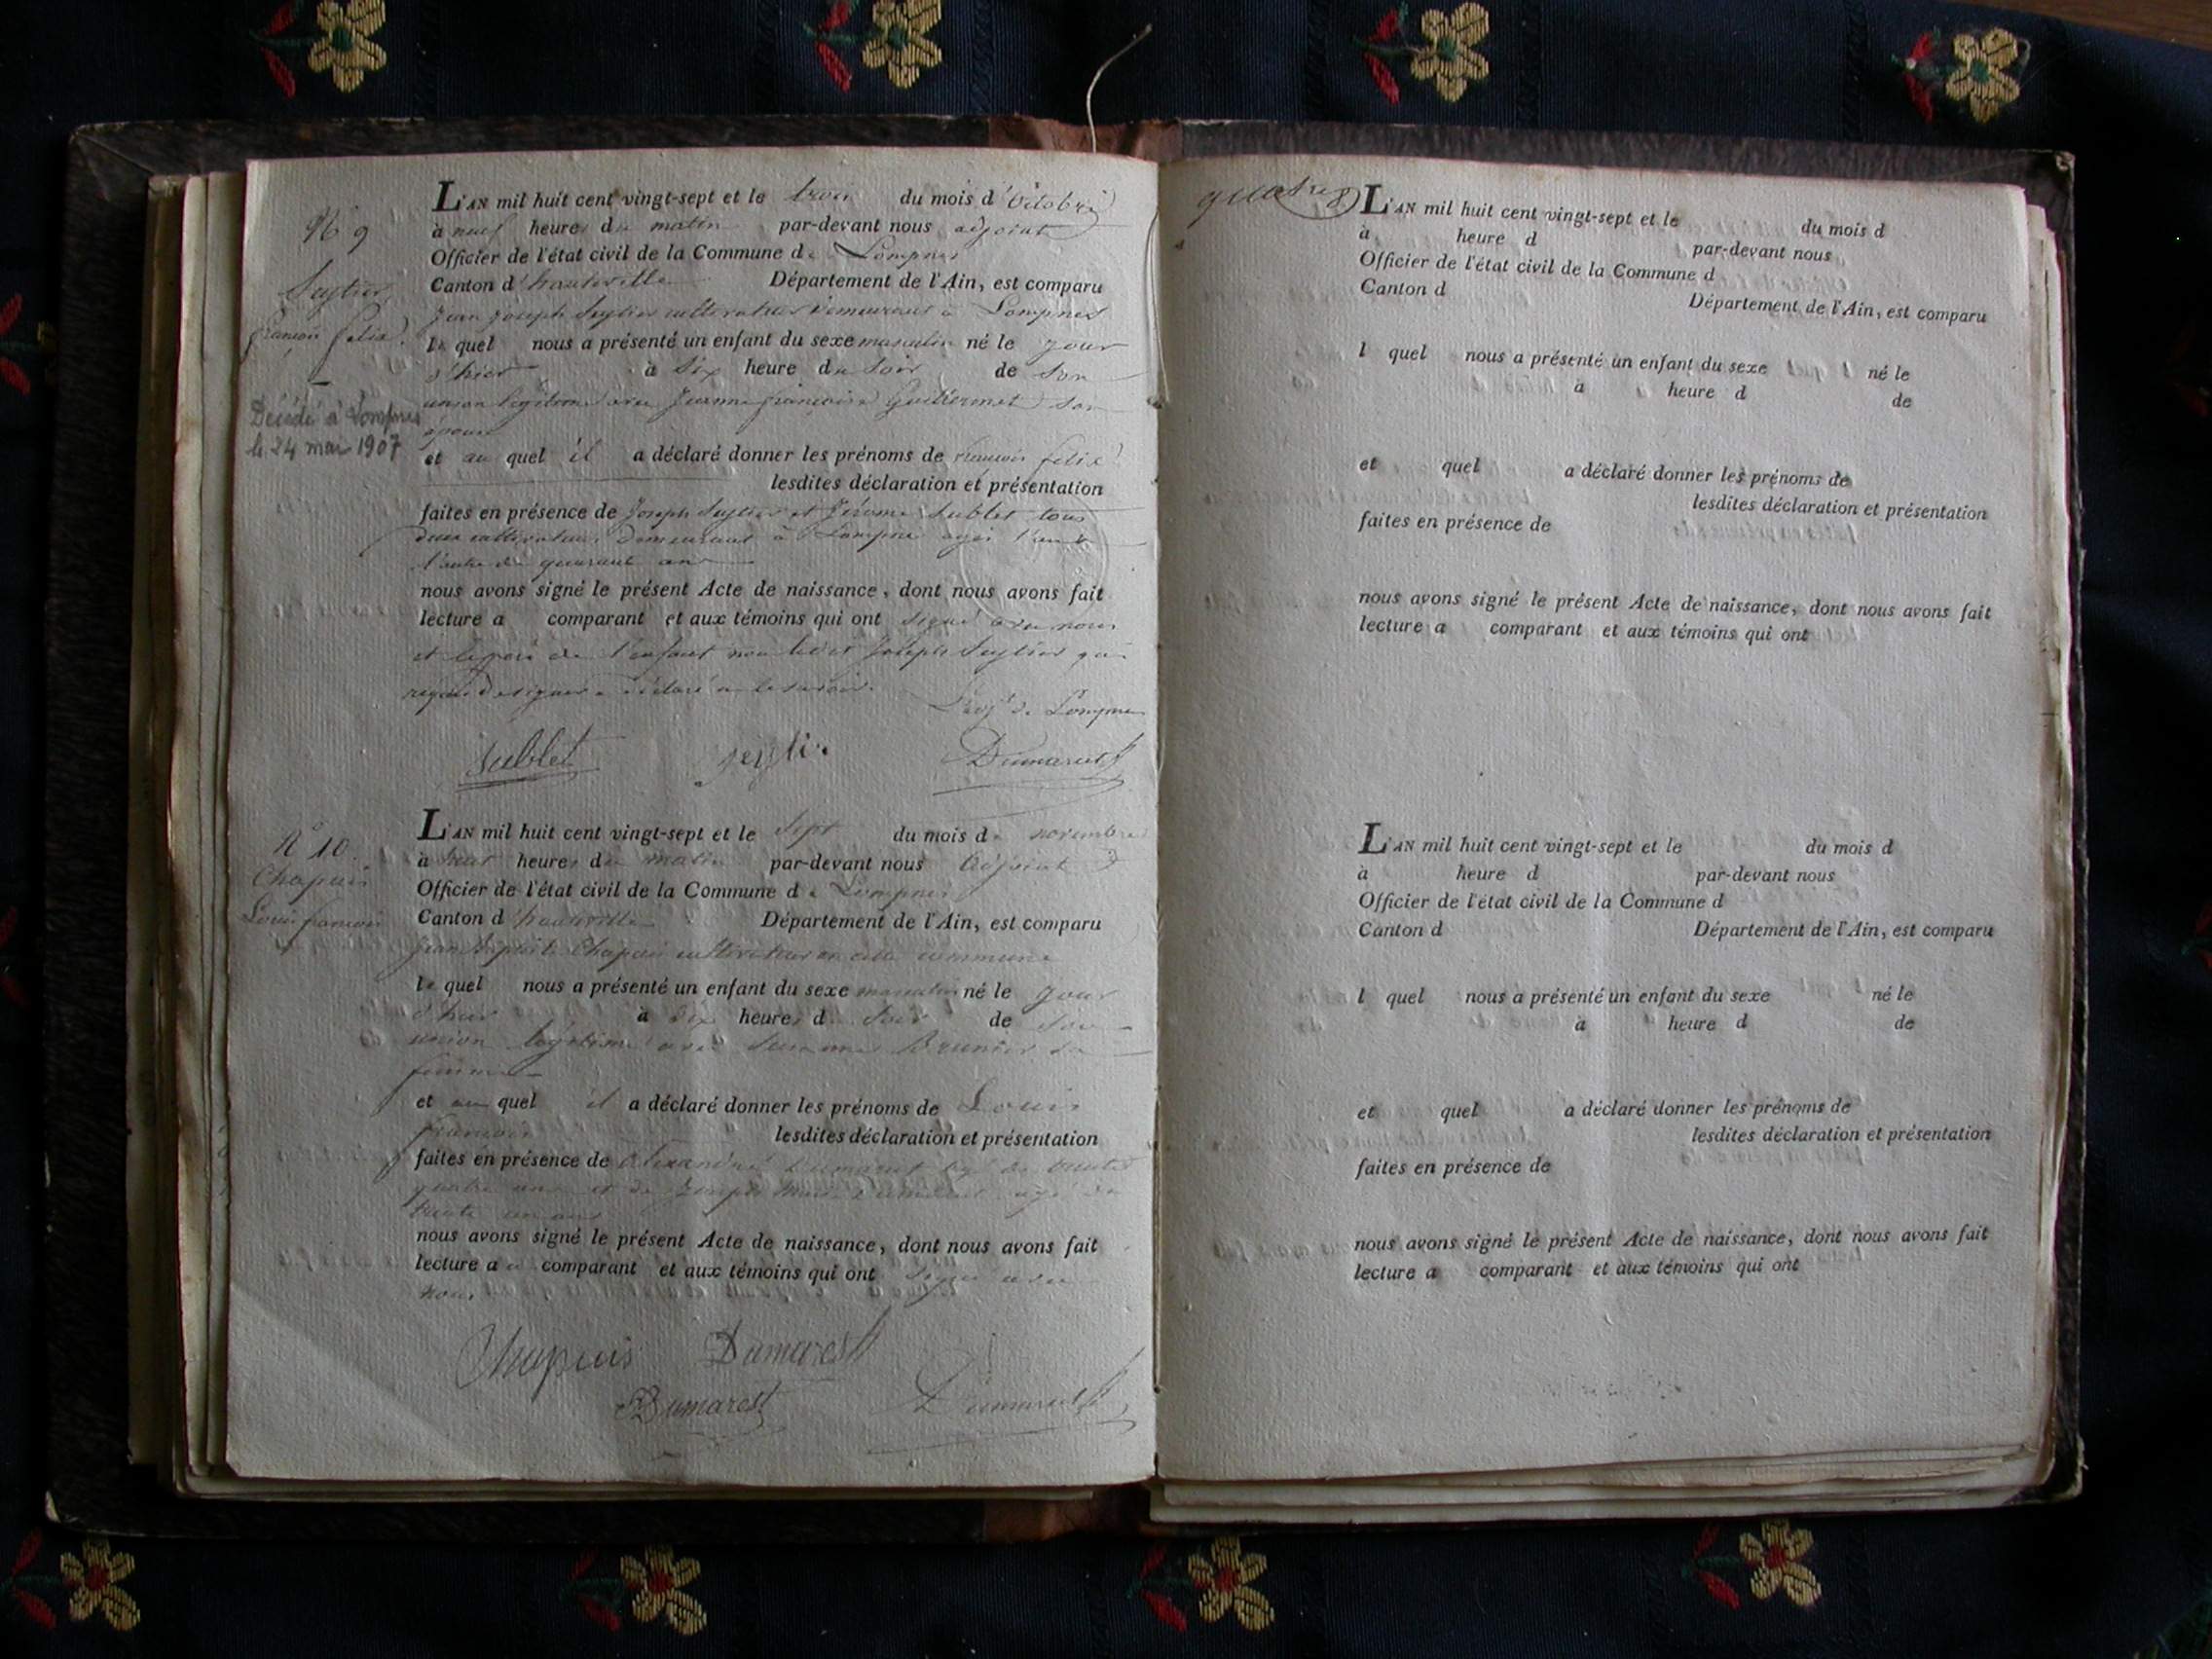 N° 9
Seytier
françois felix
Décédé à Lompnes
le 24 mai 1907
L'AN mil huit cent vingt-sept et le trois du mois d'octobre
à neuf heures du matin par-devant nous adjoint
Officier de l'état civil de la Commune de Lompnes
Canton d'hauteville Département de l'Ain, est comparu
jean joseph Seytier cultivateur demeurant à Lompnes
le quel nous a présenté un enfant du sexe masculin né le jour
d'hier à six heure du soir de son
union légitime avec jeanne françoise Guillermet son
epouse
et au quel il a déclaré donner les prénoms de francois felix
lesdites déclaration et présentation
faites en présence de Joseph Seytier et Jérome Sublet tous
deux cultivateurs demeurant à Lompne agés l'un &
l'autre de quarant ans
nous avons signé le présent Acte de naissance, dont nous avons fait
lecture a comparant et aux témoins qui ont signé avec nous
et le pere de l'enfant non ledit Joseph Seytier qui
requis de signer a déclaré ne le savoir.
L'adj de Lompne
Sublet Seytie Dumarest
N° 10.
Chapuis
Louis françois
L'AN mil huit cent vingt-sept et le sept du mois de novembre
à huit heures du matin par-devant nous adjoint
Officier de l'état civil de la Commune de Lompnes
Canton d'hauteville Département de l'Ain, est comparu
jean Baptiste Chapuis cultivateur en cette commune
le quel nous a présenté un enfant du sexe masculin né le jour
d'hier à dix heures d soir de son
union légitime avec Brunier sa
femme
et au quel il a déclaré donner les prénoms de Louis
francois lesdites déclaration et présentation
faites en présence de alexandre Dumarest agé de trente
quatre ans et de joseph marie Dumarest agé de
trente un ans
nous avons signé le présent Acte de naissance, dont nous avons fait
lecture a u comparant et aux témoins qui ont signé avec
nous
Chapuis Dumarest
Dumarest Dumarest
quatre
L'AN mil huit cent vingt-sept et le du mois d
à heure d par-devant nous
Officier de l'état civil de la Commune d
Canton d Département de l'Ain, est comparu
l quel nous a présenté un enfant du sexe né le
à heure d de
et quel a déclaré donner les prénoms de
lesdites déclaration et présentation
faites en présence de
nous avons signé le présent Acte de naissance, dont nous avons fait
lecture a comparant et aux témoins qui ont
L'AN mil huit cent vingt-sept et le du mois d
à heure d par-devant nous
Officier de l'état civil de la Commune d
Canton d Département de l'Ain, est comparu
l quel nous a présenté un enfant du sexe né le
à heure d de
et quel a déclaré donner les prénoms de
lesdites déclaration et présentation
faites en présence de
nous avons signé le présent Acte de naissance, dont nous avons fait
lecture a comparant et aux témoins qui ont